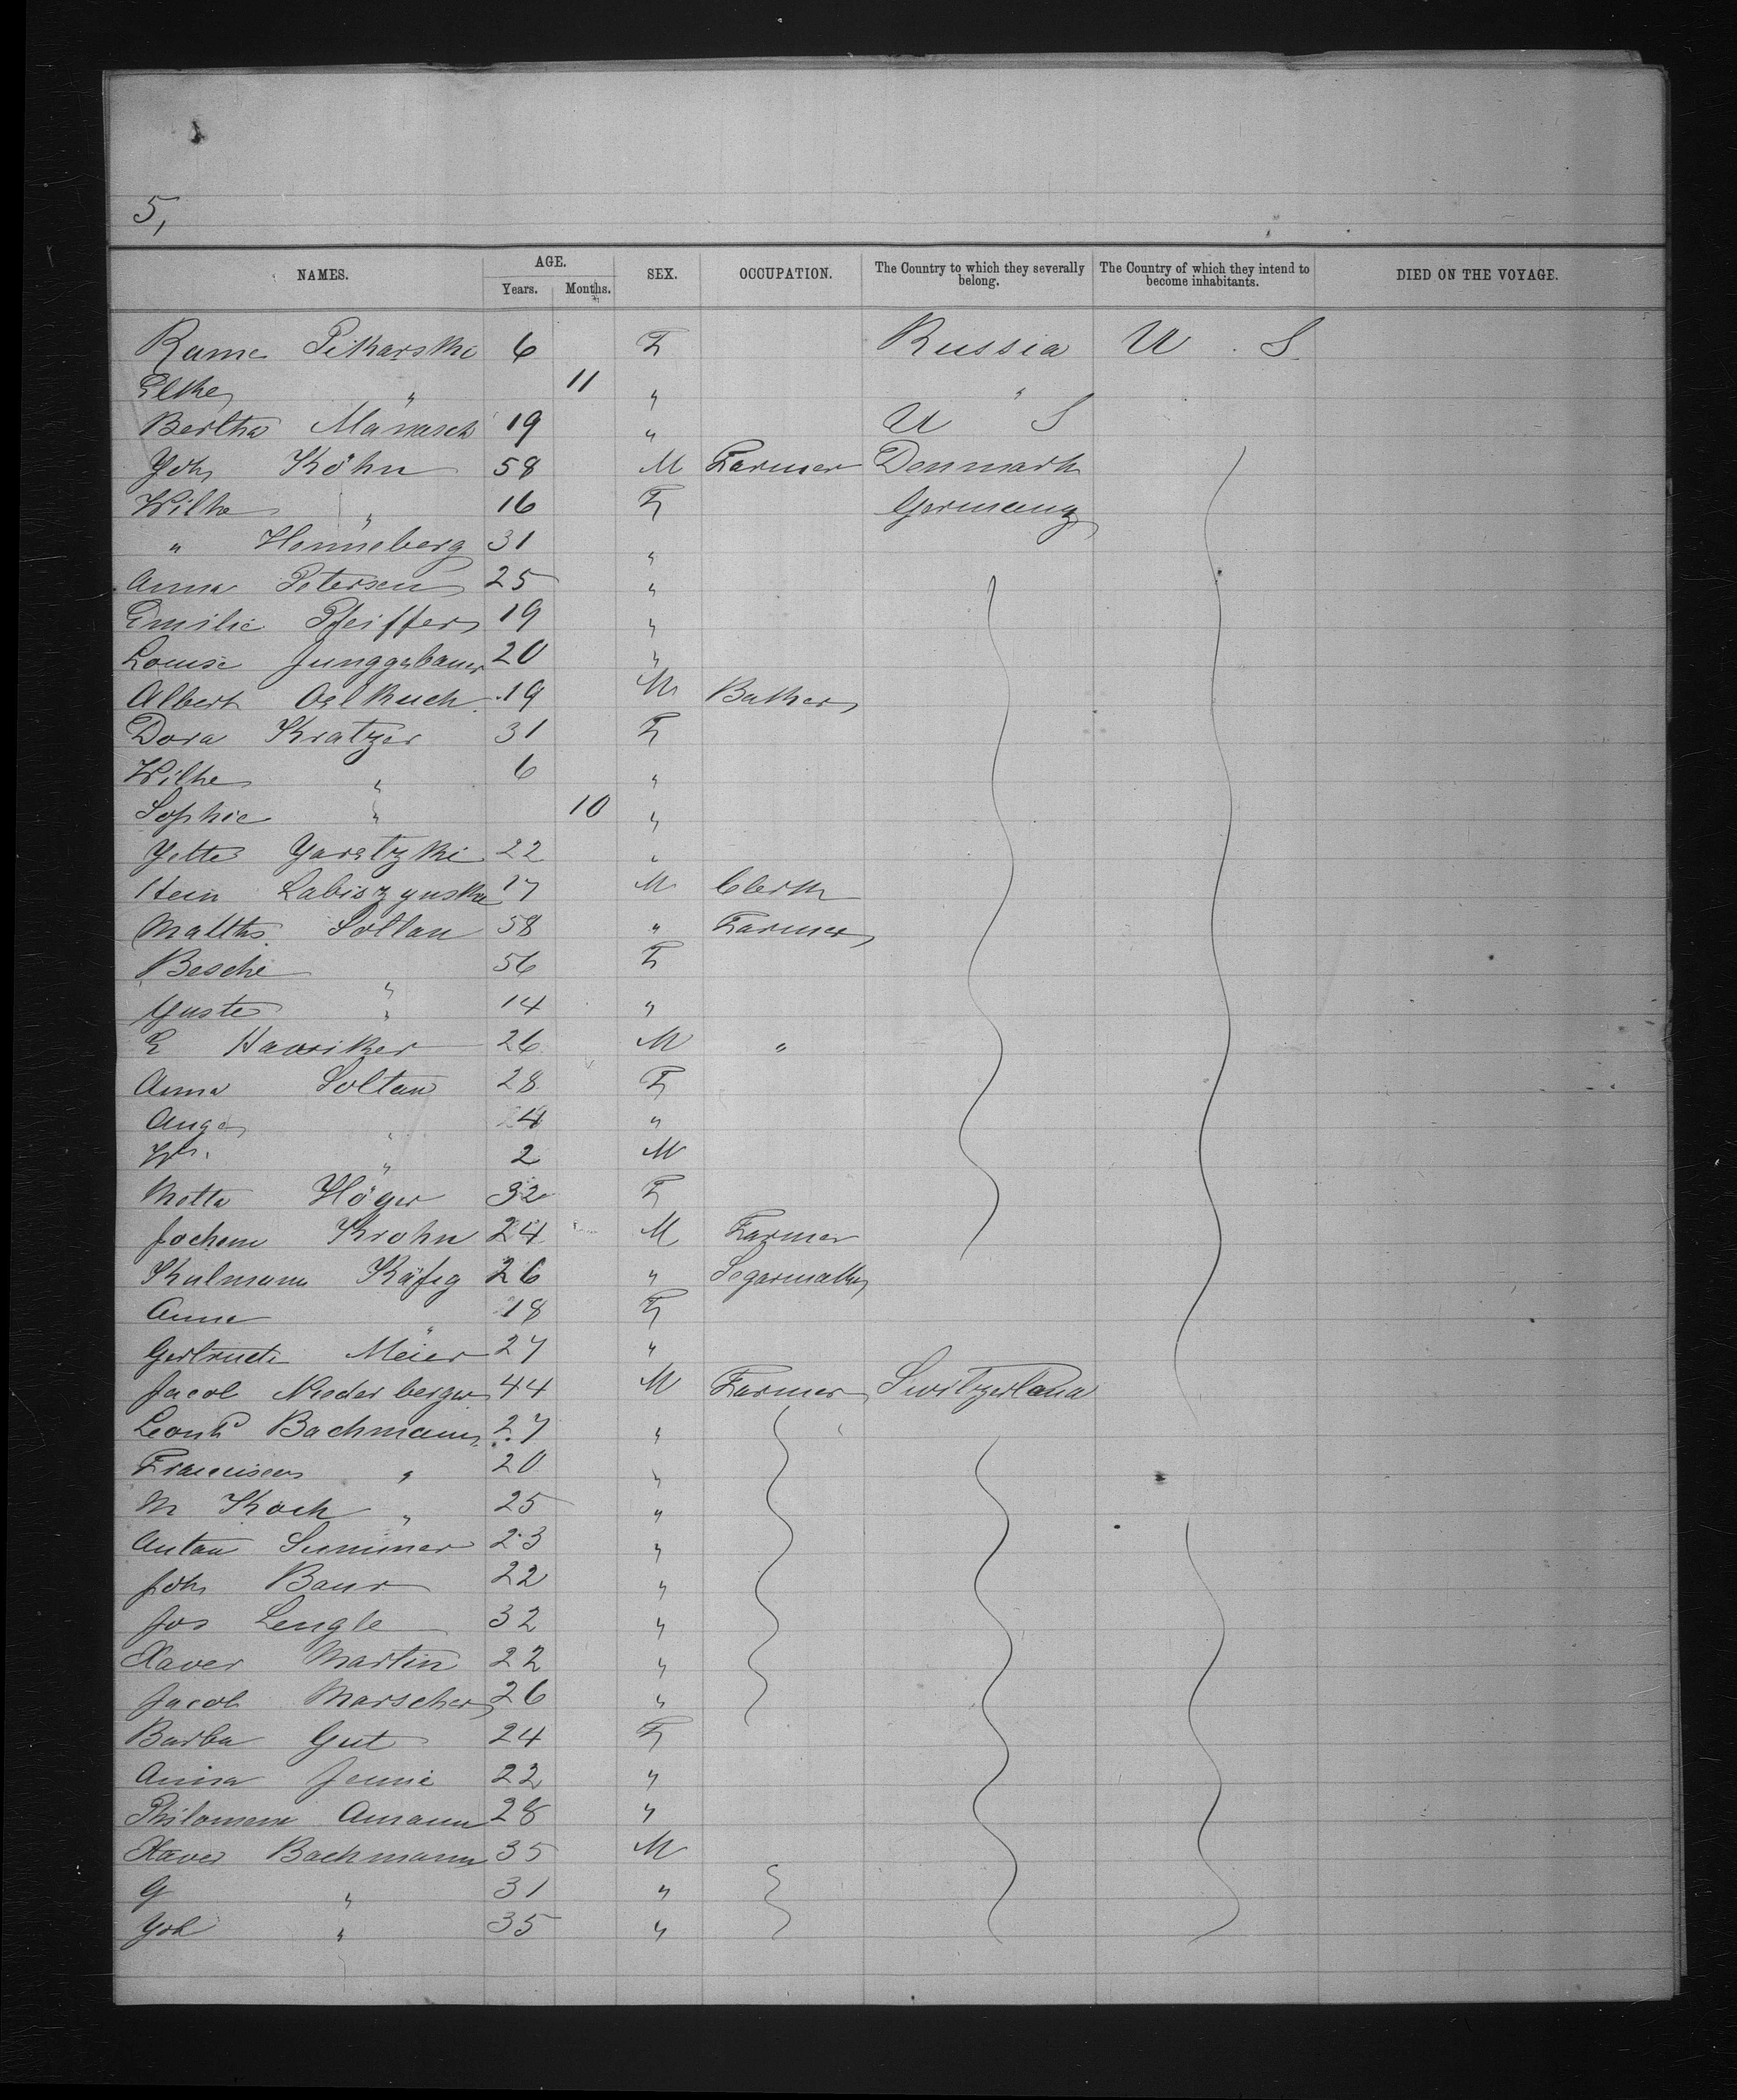 5,
NAMES. AGE. Years. Months. SEX. OCCUPATION. The Country to which they severally belong. The Country of which they intend to become inhabitants. DIED ON THE VOYAGE.
Rame Pikarski 6 F Russia U. S.
Elke " 11 " "
Bertha Manasch 19 " U S
Joh Köhn 58 M Farmer Denmark
Wilhe " 16 F Germany
" Henneberg 31 "
Anna Petersen 25 "
Emilie Pfeiffer 19 "
Louise Junggebauer 20 "
Albert Oelkuch 19 M Baker
Dora Kratzer 31 F
Wilhe " 6 "
Sophie " 10 "
Jette Jaretzki 22 "
Hein Labiszynski 17 M Clerk
Matths. Soltau 58 " Farmer
Besche " 56 F
Guste " 14 "
E Hawiker 26 M "
Anna Soltau 28 F
Auge " 4 "
Wm. " 2 M
Metta Höger 32 F
Jochem Krohn 24 M Farmer
Kulmann Käfig 26 " Segarmaker
Anna " 18 F
Gertrude Meier 27 "
Jacob Niederberger 44 M Farmer Switzerland
Leonh Bachmann 27 "
Franciscus " 20 "
M Koch " 25 "
Anton Summer 23 "
Joh Baur 22 "
Jos Lengle 32 "
Xaver Martin 22 "
Jacob Marscher 26 "
Barba Gut 24 F
Anna Jenni 22 "
Philomene Amann 28 "
Xaver Bachmann 35 M
G " 31 "
Joh " 35 "